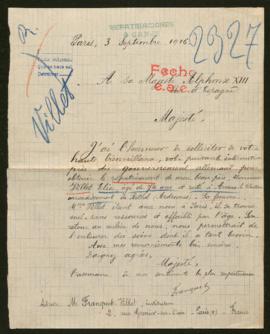 REPATRIACIONES
Paris, 3 Septembre 1916
2927
Fecha
A Sa Majesté Alphonse XIII
Roi d'Espagne
Villet
Majesté,
J'ai l'honneur de solliciter de votre
haute bienveillance, votre puissante intervention
près du gouvernement allemand pour
obtenir le rapatriement de mon beau-père, Monsieur
Villet Elie, âgé de 70 ans et resté à
de Rethel Ardennes.
Mme Villet étant avec nous à Paris, et se trouve
seul, sans ressources et affaibli par l'âge. Son
retour au milieu de nous, nous permettrait de
l'entourer des soins dont il a tant besoin.
Avec mes remerciements bien sincères,
daignez agréer,
Majesté,
l'assurance de mes sentiments les plus respectueux
Franquet
M. Franquet-Villet, instituteur
2, rue